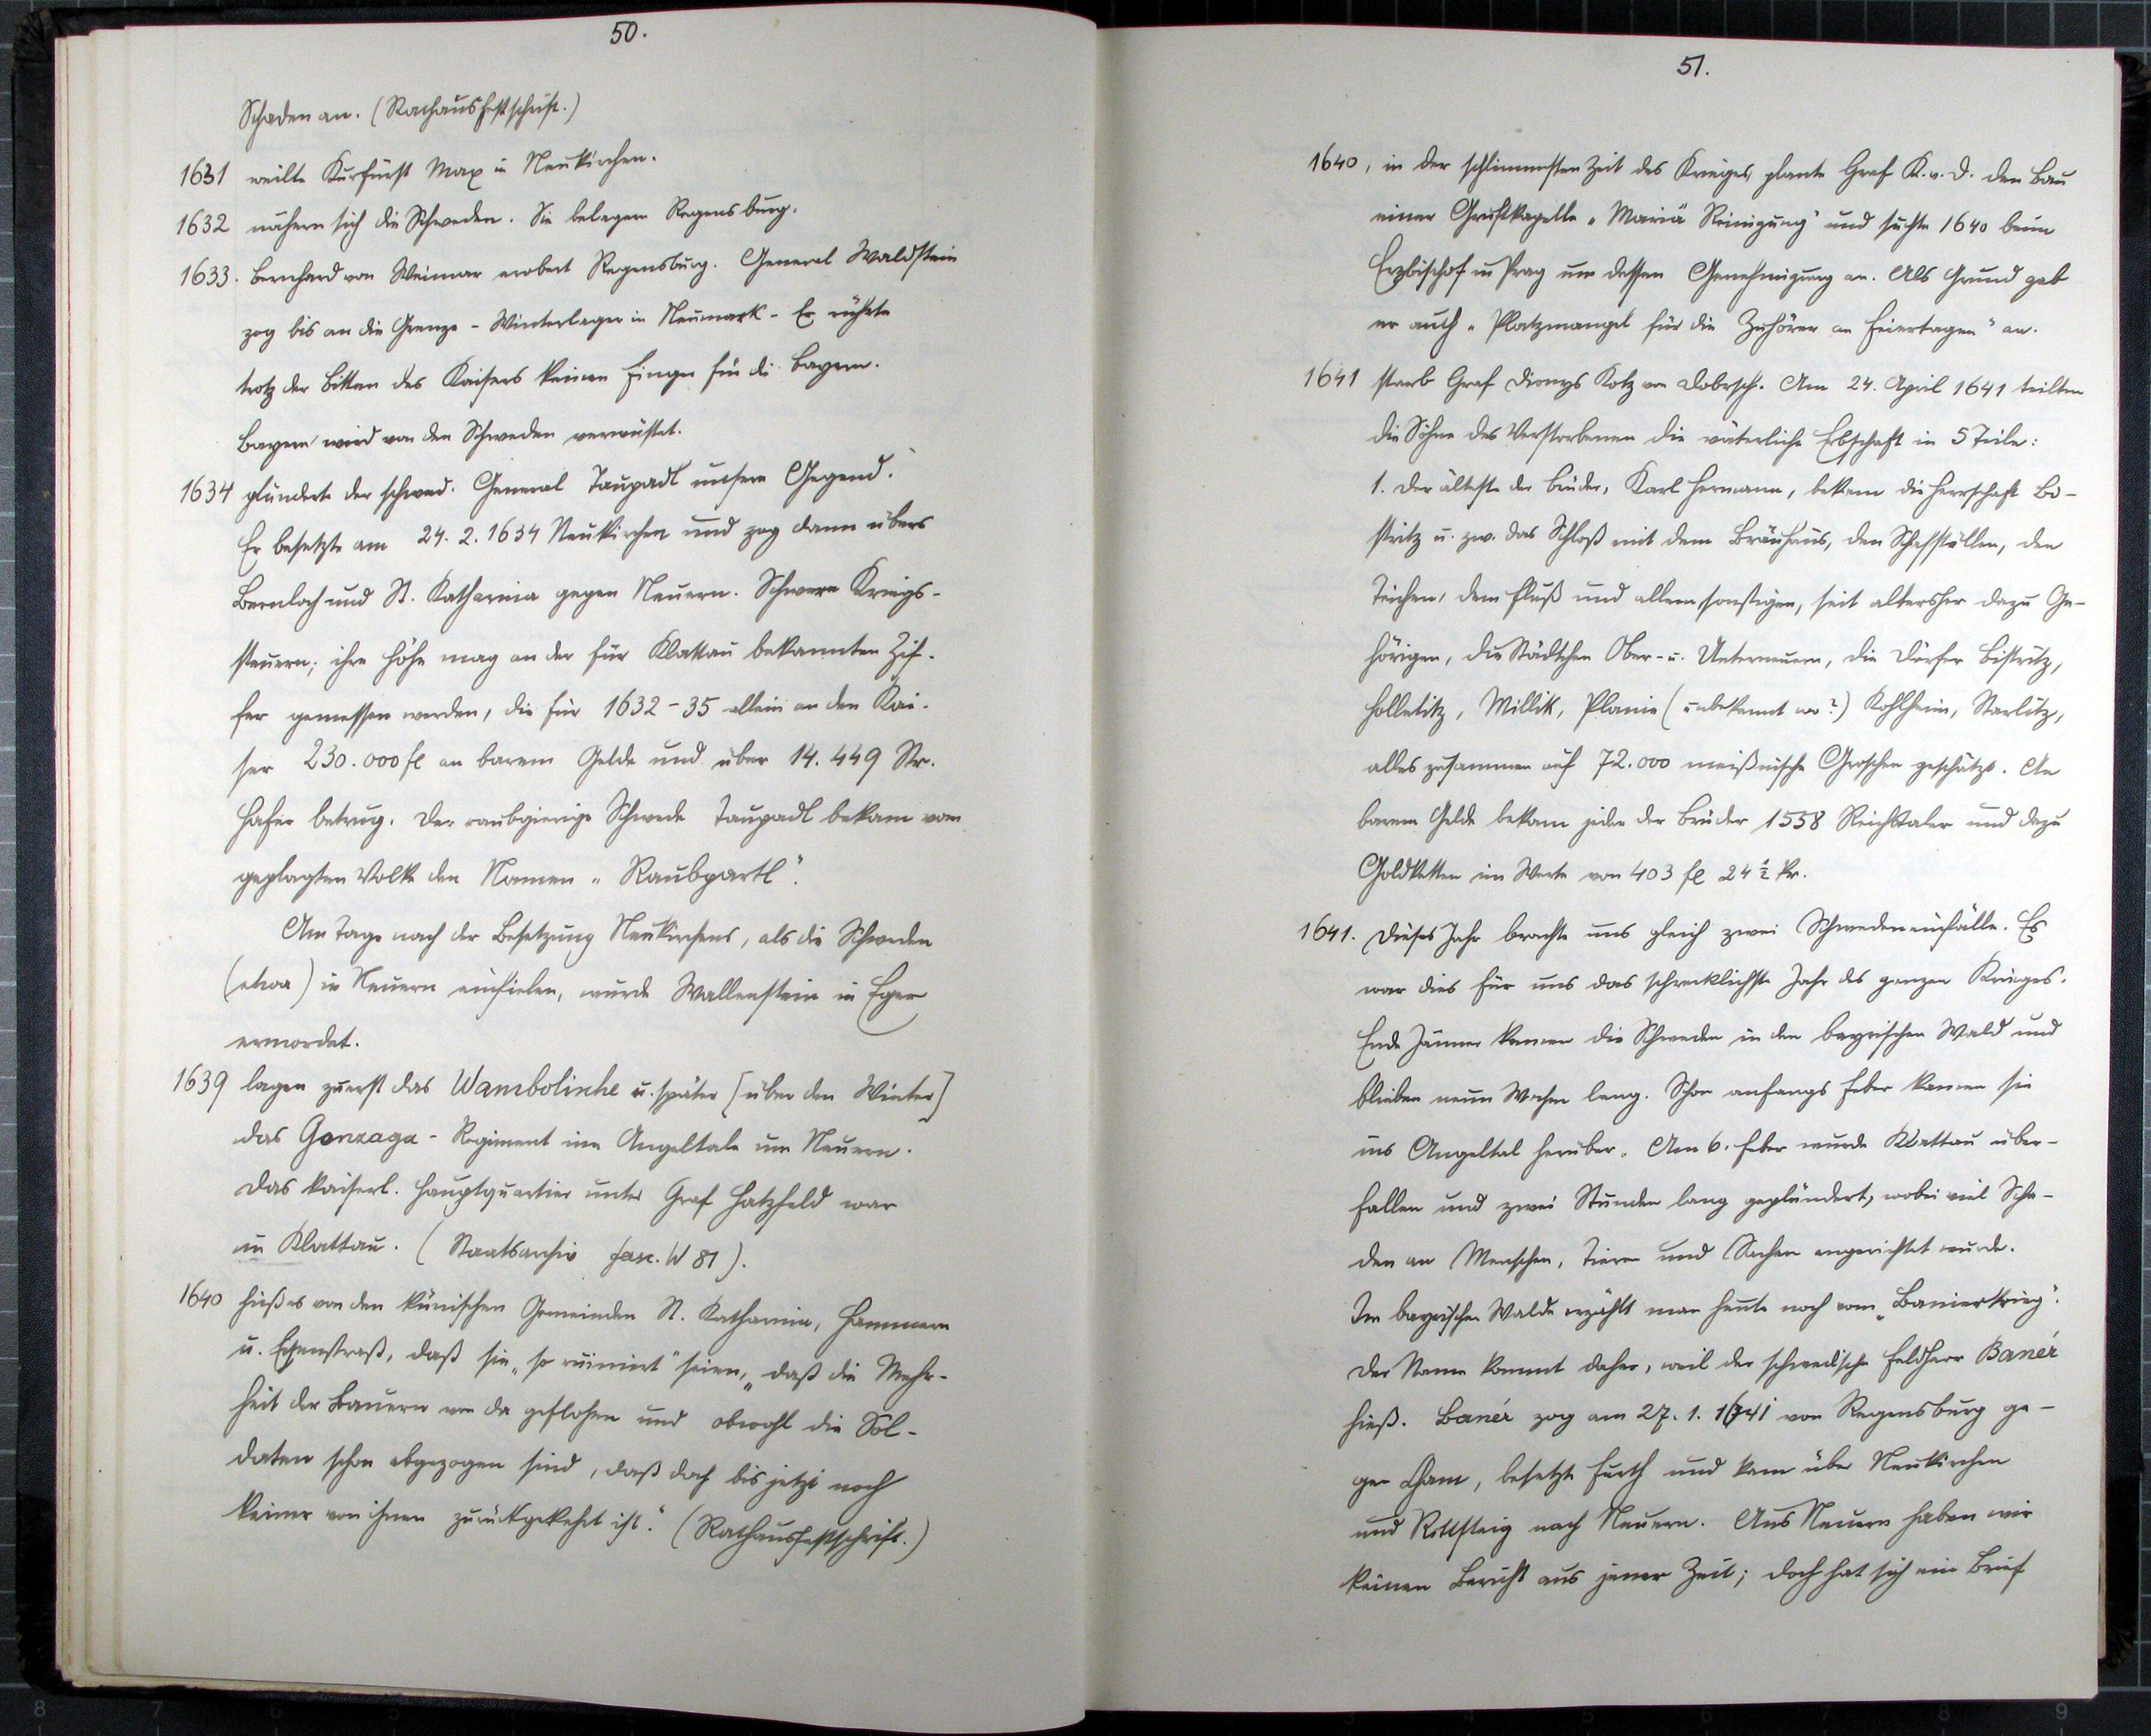 50.
Schaden an. (Rathausfestschrift.)
1631 weilte Kurfürst Max in Neukirchen.
1632 nähern sich die Schweden. Sie belagern Regensburg.
1633. Bernhard von Weimar erobert Regensburg. General Waldstein
zog bis an die Grenze - Winterlager in Neumark - Er rührte
trotz der Bitten des Kaisers keinen Finger für die Bayern.
Bayern wird von den Schweden verwüstet.
1634 plünderte der schwed. General Taupadl unsere Gegend.
Er besetzte am 24. 2. 1634 Neukirchen und zog dann übers
Bernloch und St. Katharina gegen Neuern. Schwere Kriegs-
steuern; ihre Höhe mag an der für Klattau bekannten Zif-
fer gemessen werden, die für 1632-35 allein an den Kai-
ser 230.000 fl an barem Gelde und über 14.449 Str.
Hafer betrug. Der raubgierige Schwede Taupadl bekam vom
geplagten Volke den Namen „Raubpartl“.
Am Tage nach der Besetzung Neukirchens, als die Schweden
(etwa) in Neuern einfielen, wurde Wallenstein in Eger
ermordet.
1639 lagen zuerst das Wambolische u. später [über den Winter]
das Gonzaga-Regiment im Angeltale um Neuern.
Das kaiserl. Hauptquartier unter Graf Hatzfeld war
in Klattau. (Staatsarchiv fasc. W 81).
1640 hieß es von den künischen Gemeinden St. Katharina, Hammern
u. Eisenstraß, daß sie „so ruiniert“ seien, „daß die Mehr-
heit der Bauern von da geflohen und obwohl die Sol-
daten schon abgezogen sind, daß doch bis jetzt noch
keiner von ihnen zurückgekehrt ist.“ (Rathausfestschrift.)
51.
1640, in der schlimmsten Zeit des Krieges, plante Graf K. v. D. den Bau
einer Gruftkapelle „Mariä Reinigung“ und suchte 1640 beim
Erzbischof in Prag um dessen Genehmigung an. Als Grund gab
er auch „Platzmangel für die Zuhörer an Feiertagen“ an.
1641 starb Graf Dionys Kotz von Dobrsch. Am 24. April 1641 teilten
die Söhne des Verstorbenen die väterliche Erbschaft in 5 Teile:
1. Der älteste der Brüder, Karl Hermann, bekam die Herrschaft Bi-
stritz u. zw. das Schloß mit dem Bräuhaus, den Schafställen, den
Teichen, dem Fluß und allem sonstigen, seit altersher dazu Ge-
hörigen, die Städtchen Ober- u. Unterneuern, die Dörfer Bistritz,
Holletitz, Millik, Planie (unbekannt wo?) Kohlheim, Starlitz,
alles zusammen auf 72.000 meißnische Groschen geschätzt. An
barem Gelde bekam jeder der Brüder 1558 Reichstaler und dazu
Goldketten im Werte von 403 fl 24 ½ kr.
1641. Dieses Jahr brachte uns gleich zwei Schwedeneinfälle. Es
war dies für uns das schrecklichste Jahr des ganzen Krieges.
Ende Jänner kamen die Schweden in den bayrischen Wald und
blieben neun Wochen lang. Schon anfangs Feber kamen sie
ins Angeltal herüber. Am 6. Feber wurde Klattau über-
fallen und zwei Stunden lang geplündert, wobei viel Scha-
den an Menschen, Tieren und Sachen angerichtet wurde.
Im bayrischen Walde erzählt man heute noch vom „Banierkrieg“.
Der Name kommt daher, weil der schwedische Feldherr Banér
hieß. Banér zog am 27. 1. 1641 von Regensburg ge-
gen Cham, besetzte Furth und kam über Neukirchen
und Rittsteig nach Neuern. Aus Neuern haben wir
keinen Bericht aus jener Zeit; doch hat sich ein Brief